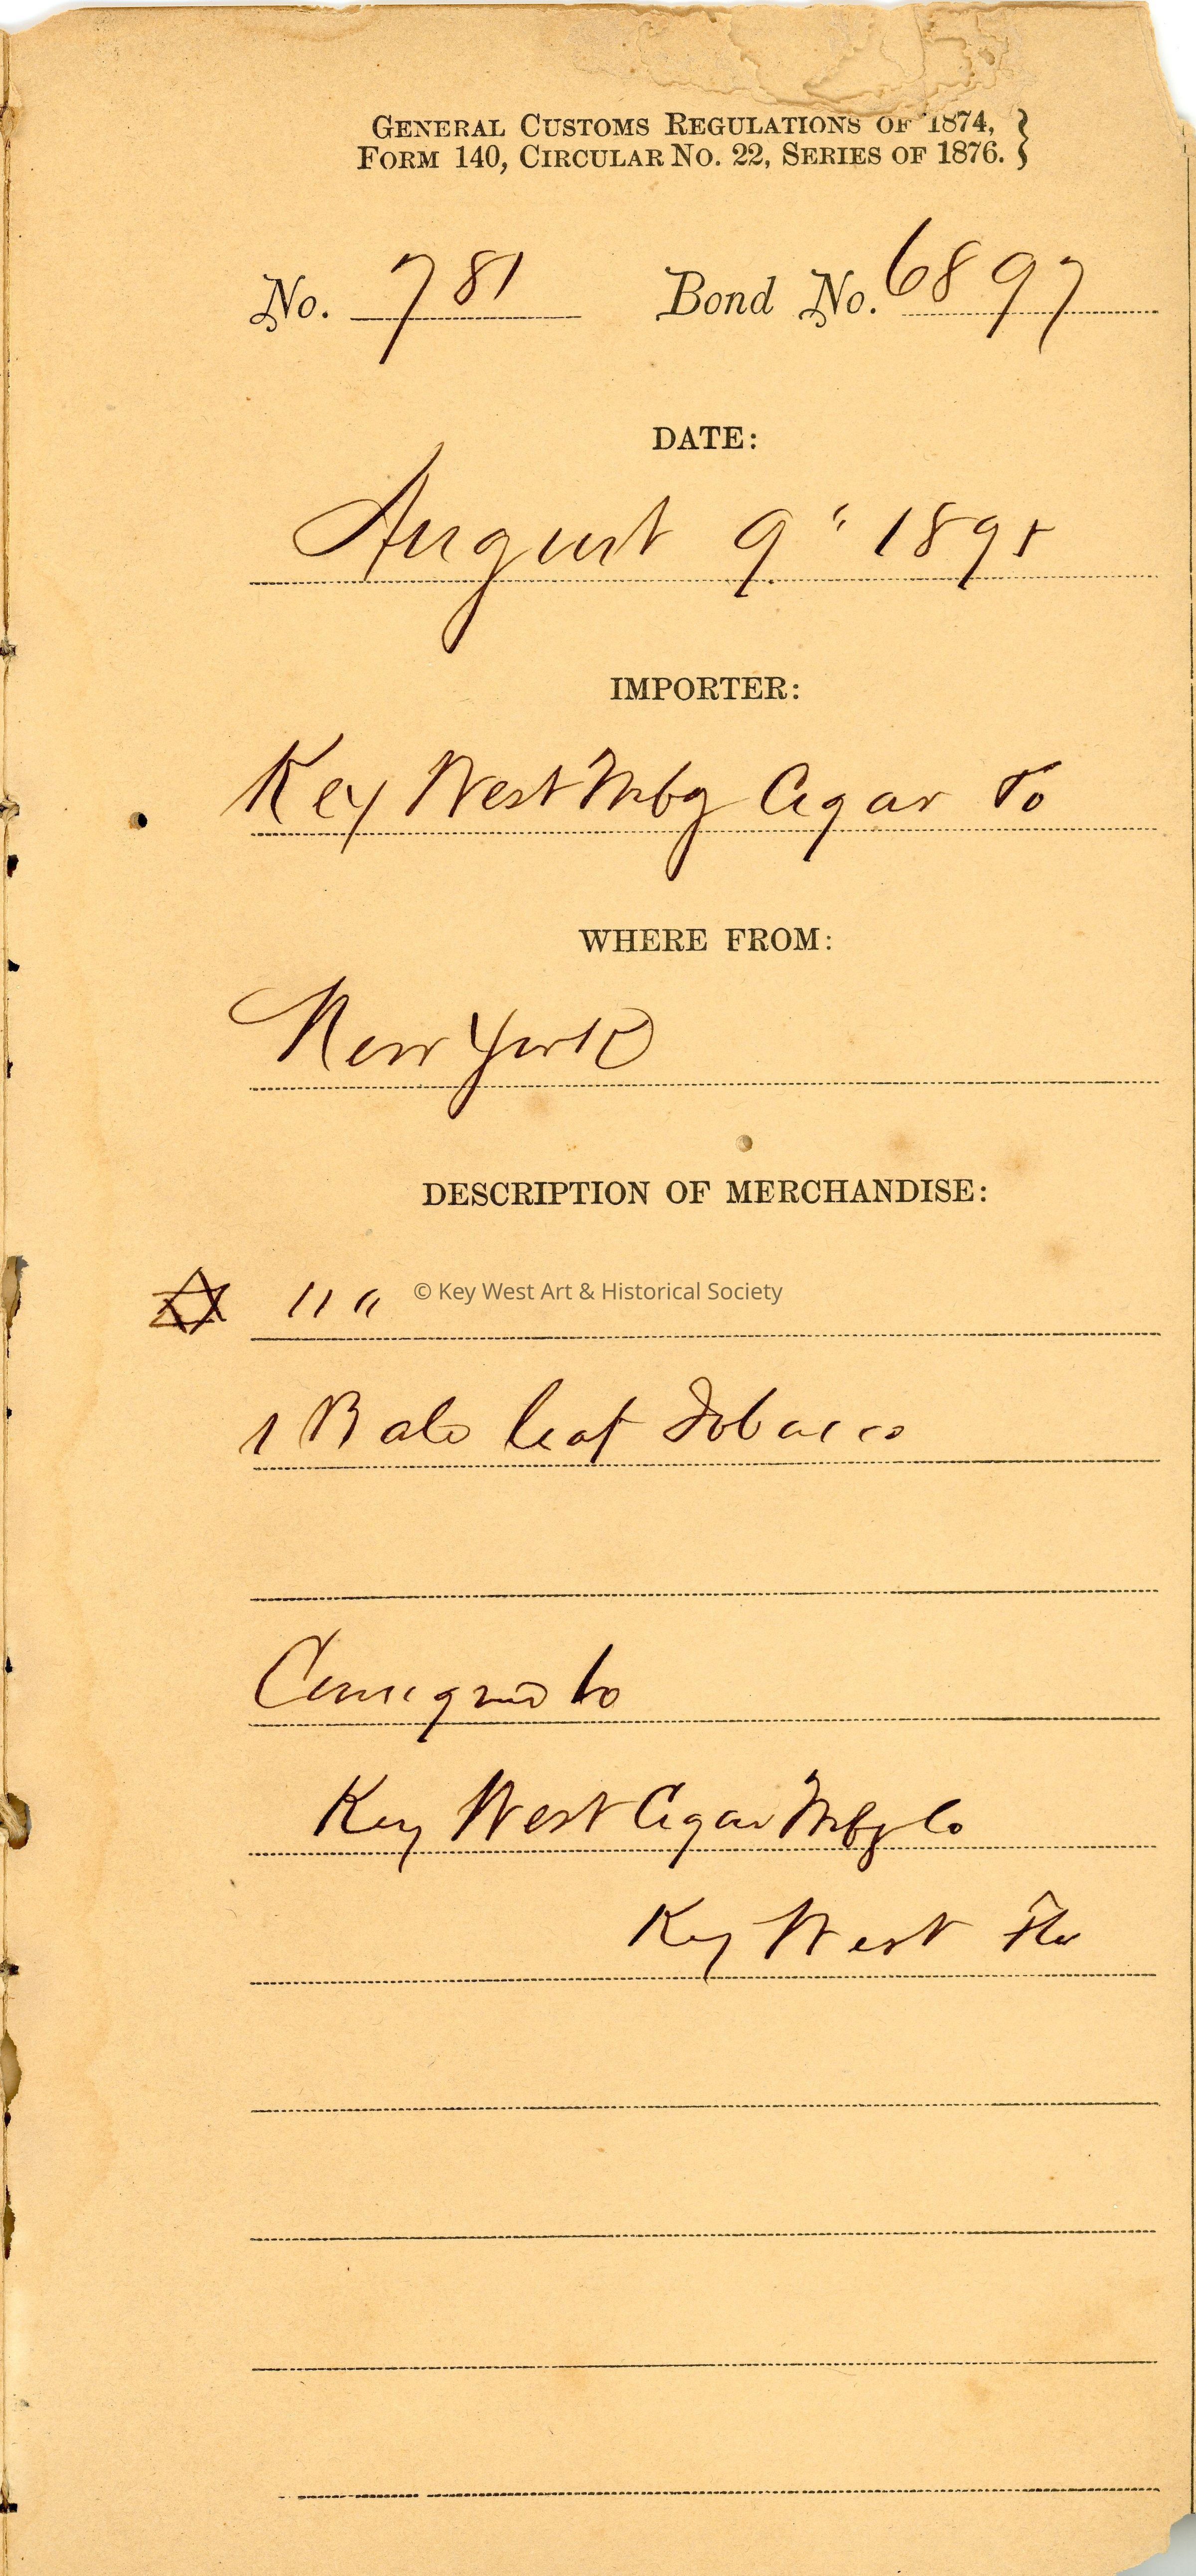 GENERAL CUSTOMS REGULATIONS OF 1874,
FORM 140, CIRCULAR NO. 22, SERIES OF 1876.
No. 781 Bond No. 6897
DATE:
August 9" 1895
IMPORTER:
Key West Mfg Cigar Co
WHERE FROM:
New York
DESCRIPTION OF MERCHANDISE:
11 "
© Key West Art & Historical Society
1 Bale leaf Tobacco
Consigned to
Key West Cigar Mfg Co
Key West Fla